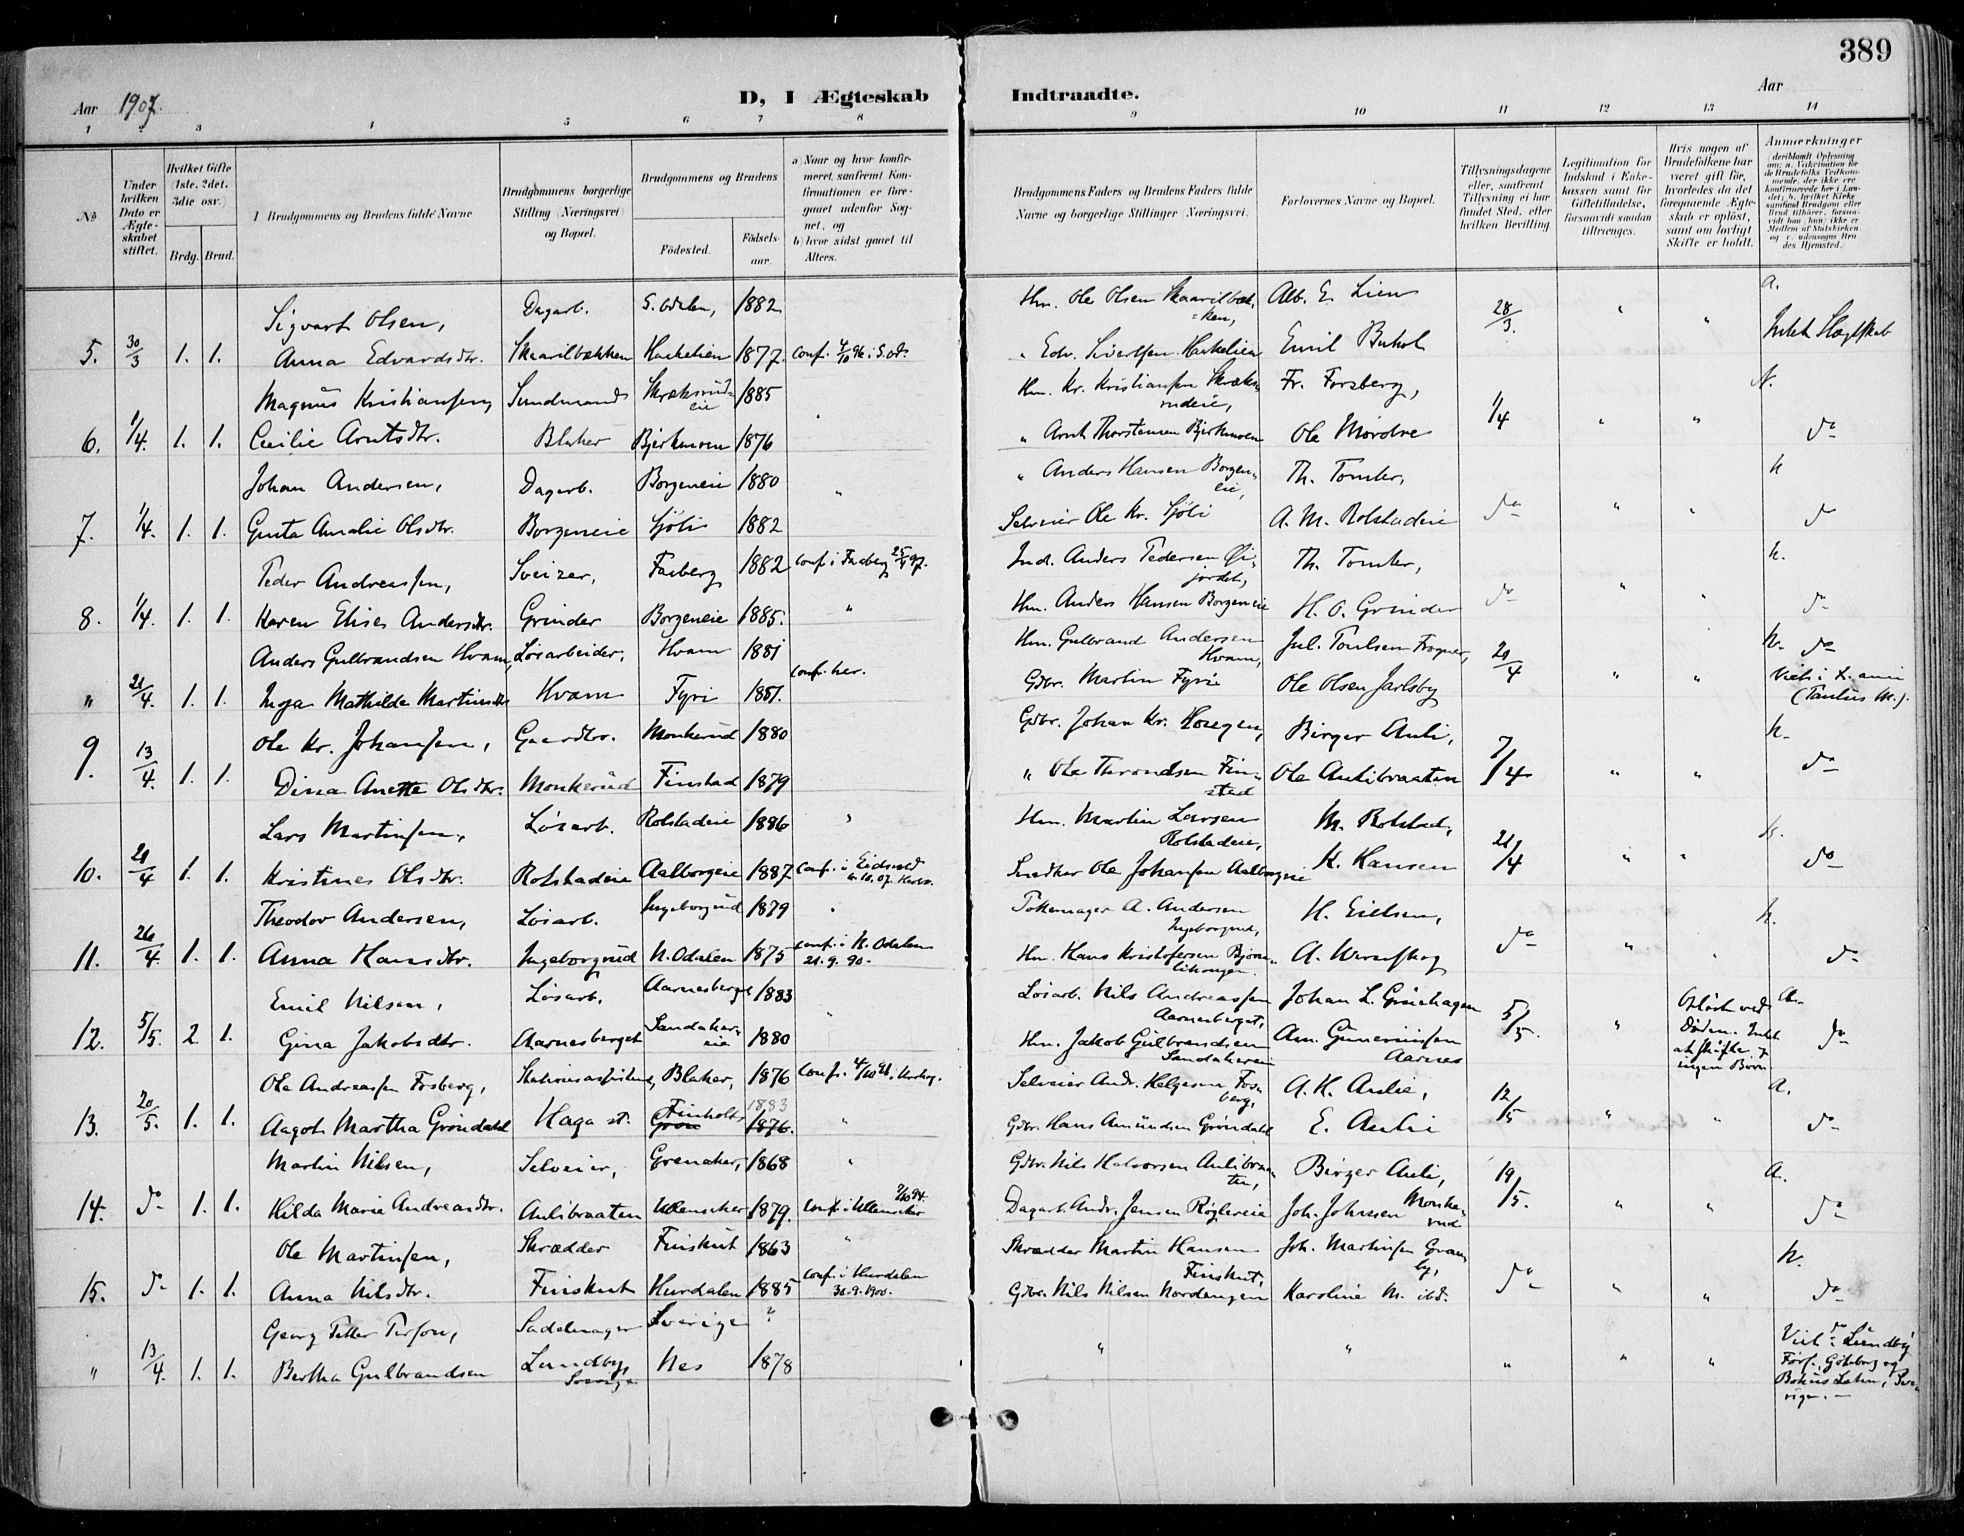 389
Aar 1907.
D, I Ægteskab Indtraadte.
Aar
1 2 3 4 5 6 7 8 9 10 11 12 13 14
No
Under hvilken Dato er Ægteskabet stiftet.
Hvilket Gifte (1ste, 2det, 3die osv.)
Brdg. Brud.
I Brudgommens og Brudens fulde Navne
Brudgommens borgerlige Stilling (Næringsvei) og Bopæl.
Brudgommens og Brudens
Fødested.
Fødselsaar.
a) Naar og hvor konfirmeret, saafremt Konfirmationen er foregaaet udenfor Sognet, og
b) hvor sidst gaaet til Alters.
Brudgommens Faders og Brudens Faders fulde Navne og borgerlige Stillinger (Næringsvei).
Forlovernes Navne og Bopæl.
Tillysningsdagene eller, saafremt Tillysning ei har fundet Sted, efter hvilken Bevilling.
Legitimation for Indskud i Enkekassen samt for Giftetilladelse, forsaavidt saadan tiltrænges.
Hvis nogen af Brudefolkene har været gift før, hvorledes da det foregaaende Ægteskab er opløst, samt om lovligt Skifte er holdt.
Anmerkninger
Sigvart Olsen, Dagarb. S. Odalen, 1882 Hm. Ole Olsen Skaarilbækken, Alb. E. Lien 28/3. a.
5. 30/3 1. 1. Anna Edvardsdtr. Skaarilbækken Haskelien 1877. Conf. 4/10 96 i S. Od. " Edv. Sivertsen Haskelien Emil Buhol " " Intet Slægtskab
Magnus Kristiansen, Sundmand Skræksrudeie 1885 " Hm. Kr. Kristiansen Skræksrudeie, Fr. Forsberg, 1/4 N.
6. 1/4. 1. 1. Cecilie Arntsdtr. Blaker Bjerkmoen 1876 " Arnt Thorstensen Bjerkmoen Ole Mordre " " do
Johan Andersen, Dagarb. Borgeneie 1880 " " Anders Hansen Borgeneie, Th. Tomter, h
7. 1/4. 1. 1. Gusta Amalie Olsdtr. Borgeneie Sjöli 1882 Selveier Ole Kr. Sjöli A. M. Rolstadeie do " " do
Peder Andreassen, Sveizer, Faaberg 1882 Conf. i Faaberg 25/4 97. Ind. Anders Pedersen Øijordet, Th. Tomter, h.
8. 1/4. 1. 1. Karen Elise Andersdtr. Grinder Borgeneie 1885. " Hm. Anders Hansen Borgeneie H. O. Grinder do " " do
Anders Gulbrandsen Hvam, Løsarbeider, Hvam 1881 Conf. her. Hm. Gulbrand Andersen Hvam, Jul. Poulsen Frogner, 21/4 h. do
" 21/4. 1. 1. Inga Mathilde Martinsdtr Hvam Fyri 1881. Gdbr. Martin Fyrie Ole Olsen Jarlsby " " Viet i
Ole Kr. Johansen, Gaardbr. Monkerud 1880 Gdbr. Johan Kr. Haugen, Birger Auli, 7/4 h.
9. 13/4. 1. 1. Dina Anette Olsdtr. Monkerud Finstad 1879 " Ole Throndsen Finstad Ole Aulibraaten " " do
Lars Martinsen, Løsarb. Rolstadeie 1886 " Hm. Martin Larsen Rolstadeie, M. Rolstad, 21/4 h.
10. 21/4 1. 1. Kristines Olsdtr. Rolstadeie Aalborgeie 1887. Conf. i Eidsvold Snedker Ole Johansen Aalborgeie K. Hansen " " do
Theodor Andersen, Løsarb. Ingeborgrud 1879 " A. Andersen Ingeborgrud, H. Eielsen, h.
11. 26/4. 1. 1. Anna Hansdtr. Ingeborgrud N. Odalen 1875 conf. i N. Odalen 21.9.90. Hm. Hans Kristofersen Bjørnlihaugen. A. do " " do
Emil Nilsen, Løsarb. Aarnesberget 1883 " Løsarb. Nils Andreassen Aarnesberget, Johan L. Grønhagen 5/5. Opløst ved Døden. Intet at skifte og ingen Børn A.
12. 5/5. 2. 1. Gina Jakobsdtr. Aarnesberget Sandakereie 1880 Hm. Jakob Gulbrandsen Sandakereie Am. Guneriussen Aarnes " do
Ole Andreassen Fosberg, Stationsassistent, Blaker, 1876 Conf. 4/10 Selveier Andr. Helgesen Fosberg, A. H. Aulie, 12/5 a.
13. 20/5. 1. 1. Aagot Martha Grøndahl Haga st. Finholt 1883 1876. " Gdbr. Hans Amundsen Grøndahl E. Aulie " " do
Martin Nilsen, Selveier, Grenaker, 1868 " Gdbr. Nils Halvorsen Aulibraaten, Birger Auli, 19/5. a.
14. do 1. 1. Hilda Marie Andreasdtr. Aulibraaten Ullensaker 1879. Conf. i Ullensaker Dagarb. Andr. Jensen Røglereie Joh. Johnsen Monkerud " " do
Ole Martinsen, Skrædder Finskut 1863 " Skrædder Martin Hansen Finskut, Joh. Martinsen h.
15. do 1. 1. Anna Nilsdtr. Finskut Hurdalen 1885 Conf. i Hurdalen 30.9.1900. Gdbr. Nils Nilsen Nordengen Karoline M. ibd. do " " do
Georg Petter Person, Sadelmager Sverige ? do
" 13/4. 1. 1. Bertha Gulbrandsen Lundby, Sverige Nes 1878 " " " " " Viet i Lundby Förs. Göteborg og Bohus Län, Sverige.